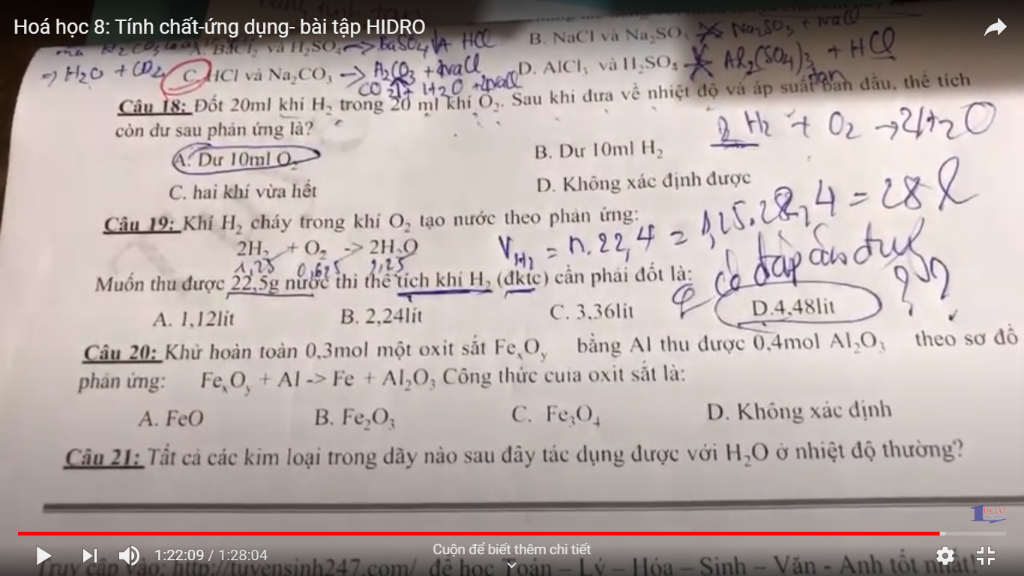 Hoá học 8: Tính chất-ứng dụng- bài tập HIDRO
và H₂SO₄ → BaSO₄ + HCl B. NaCl và Na₂SO₃ Na₂SO₃ + NaCl
=> H₂O + CO₂ C. HCl và Na₂CO₃ → D. AlCl₃ và H₂SO₄ Al₂(SO₄)₃ + HCl
CO₂ + H₂O + NaCl
Câu 18: Đốt 20ml khí H₂ trong 20 ml khí O₂. Sau khi đưa về nhiệt độ và áp suất ban đầu, thể tích
còn dư sau phản ứng là?
2H₂ + O₂ → 2H₂O
A. Dư 10ml O₂ B. Dư 10ml H₂
C. hai khí vừa hết D. Không xác định được
Câu 19: Khí H₂ cháy trong khí O₂ tạo nước theo phản ứng:
2H₂ + O₂ -> 2H₂O
V H₂ = n.22,4 = 1,25.22,4 = 28 l
1,25 0,625 1,25
Muốn thu được 22,5g nước thì thể tích khí H₂ (đktc) cần phải đốt là:
có đáp án đúng ??
A. 1,12lít B. 2,24lít C. 3.36lít D.4,48lít
Câu 20: Khử hoàn toàn 0,3mol một oxit sắt FeₓOᵧ bằng Al thu được 0,4mol Al₂O₃ theo sơ đồ
phản ứng: FeₓOᵧ + Al -> Fe + Al₂O₃ Công thức cuia oxit sắt là:
A. FeO B. Fe₂O₃ C. Fe₃O₄ D. Không xác định
Câu 21: Tất cả các kim loại trong dãy nào sau đây tác dụng được với H₂O ở nhiệt độ thường?
1:22:09 / 1:28:04
Cuộn để biết thêm chi tiết
Truy cập vào: http://tuyensinh247.com/ để học Toán – Lý – Hóa – Sinh – Văn - Anh tốt nhất!